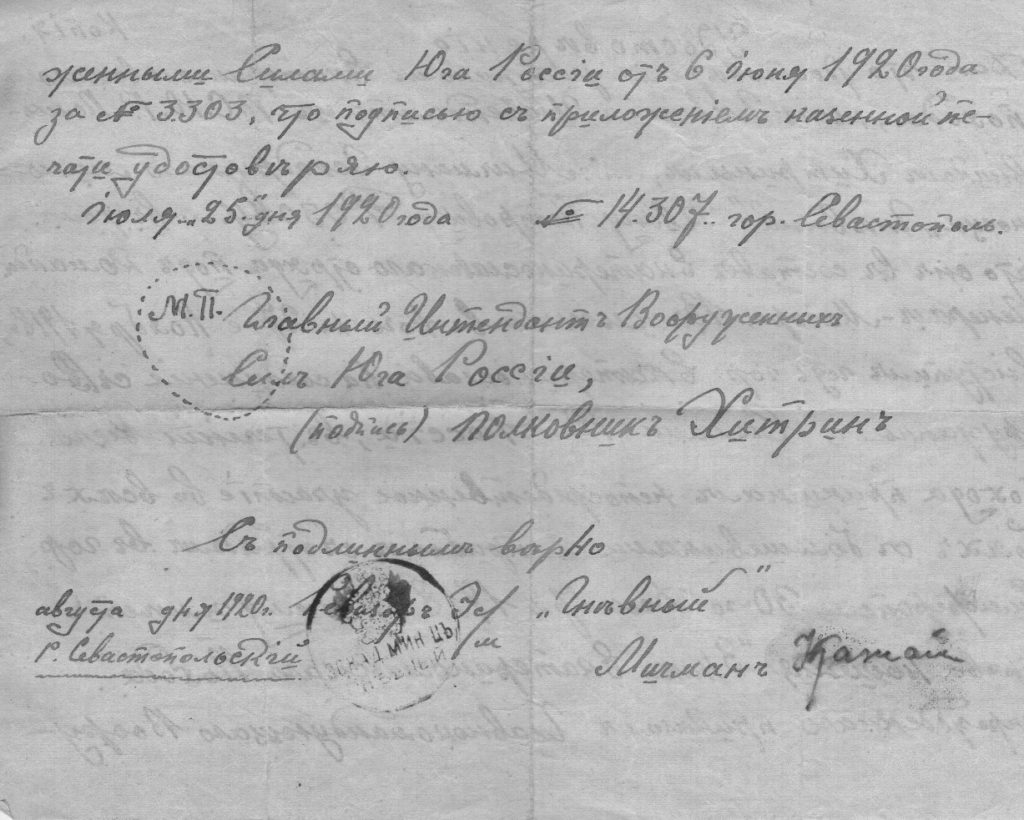 женными Силами Юга Россіи отъ 6 Іюня 1920 года
за № 3303, что подписью съ приложеніемъ казенной пе-
чати удостовѣряю.
Іюля „25" дня 1920 года № 14.307. гор. Севастополь.
М.П. Главный Интендантъ Вооруженныхъ
Силъ Юга Россіи,
(подпись) полковникъ Хитринъ
Съ подлиннымъ вѣрно
августа дня 1920 г. Эс/м „Гнѣвный"
Р. Севастопольскій Мичманъ